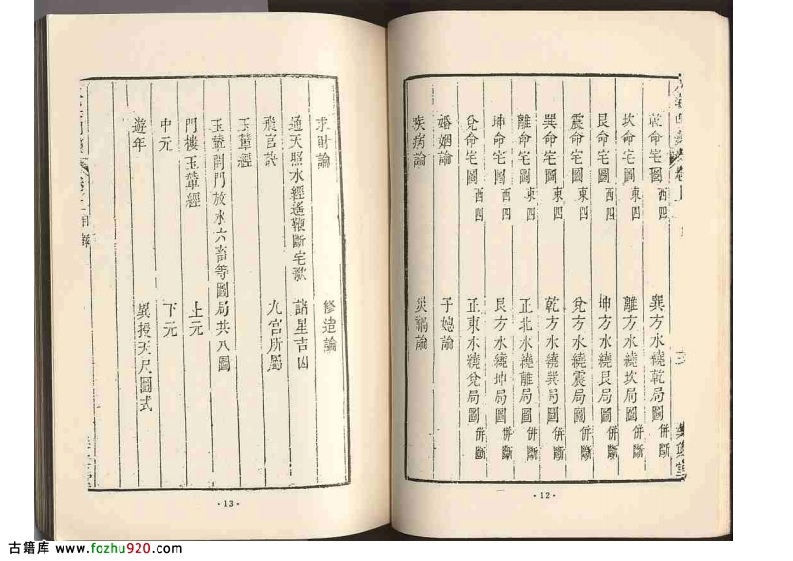 乾命宅圖 西四 巽方水繞乾局圖 併斷
坎命宅圖 東四 離方水繞坎局圖 併斷
艮命宅圖 西四 坤方水繞艮局圖 併斷
震命宅圖 東四 兌方水繞震局圖 併斷
巽命宅圖 東四 乾方水繞巽局圖 併斷
離命宅圖 東四 正北水繞離局圖 併斷
坤命宅圖 西四 艮方水繞坤局圖 併斷
兌命宅圖 西四 正東水繞兌局圖 併斷
婚姻論 子媳論
疾病論 災禍論
·12·
求財論 修造論
通天照水經遙鞭斷宅歌 諸星吉凶
飛宮訣 九宮所屬
玉輦經
玉輦開門放水六畜等圖局共八圖
門樓玉輦經 上元
中元 下元
遊年 異授天尺圖式
·13·
古籍库 www.fozhu920.com